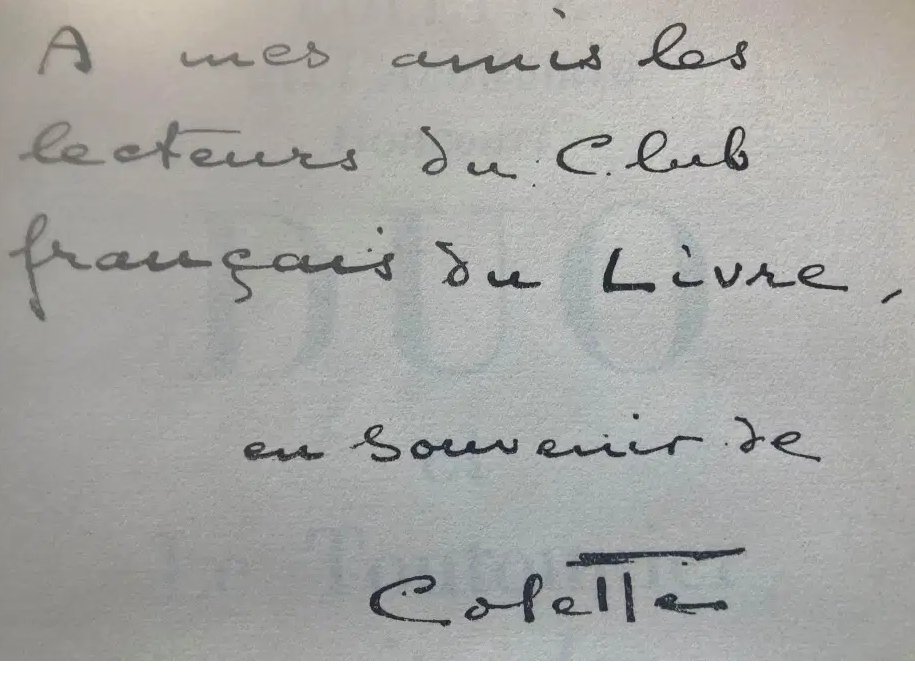 A mes amis les
lecteurs du Club
français du Livre,
en souvenir de
Colette
DUO
Le Toutounier